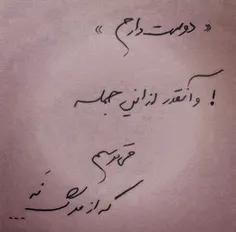 « دوست دارم »
و آنقدر از این جمله !
می ترسم
که از مرگ نه ...